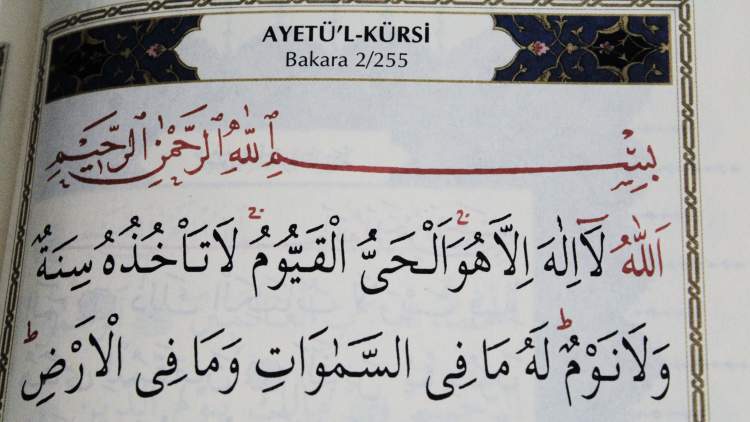 AYETÜ’L-KÜRSİ
Bakara 2/255
بِسْمِ اللّٰهِ الرَّحْمٰنِ الرَّحٖيمِ
اَللّٰهُ لَٓا اِلٰهَ اِلَّا هُوَۚ اَلْحَىُّ الْقَيُّومُۚ لَا تَأْخُذُهُ سِنَةٌ
وَلَا نَوْمٌۜ لَهُ مَا فِى السَّمٰوَاتِ وَمَا فِى الْاَرْضِۜ